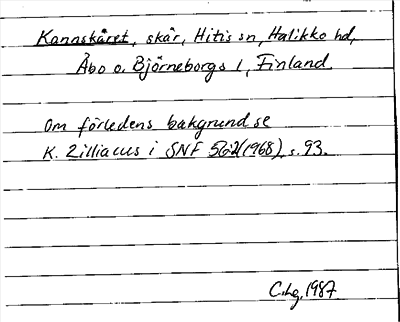 Kannskäret, skär, Hitis sn, Halikko hd,
Åbo o. Björneborgs l, Finland
Om förledens bakgrund se
K. Zilliacus i SNF (1968), s. 93.
C.Lg. 1987